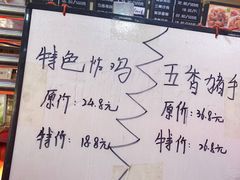 特色炸鸡
原价:24.8元
特价:18.8元
五香猪手
原价:36.8元
特价:26.8元